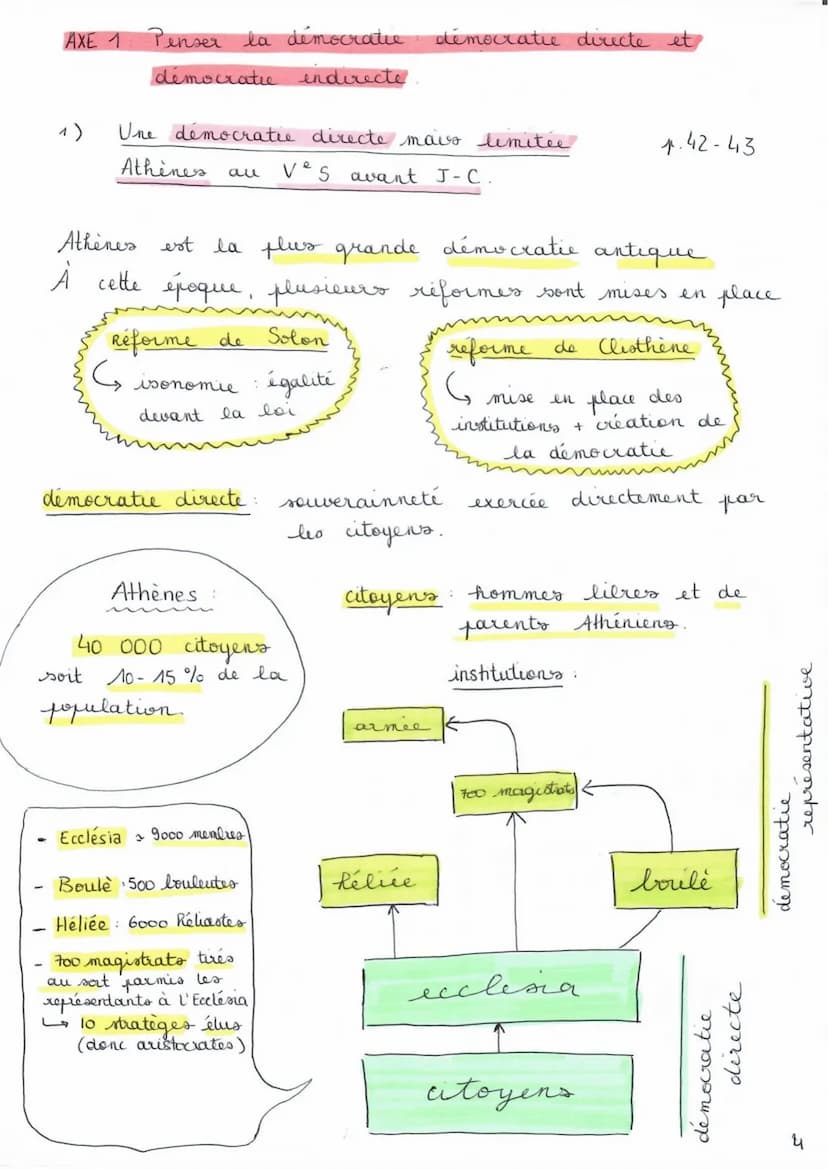 AXE 1 Penser la démocratie : démocratie directe et
démocratie indirecte.
1) Une démocratie directe mais limitée
p.42-43
Athènes au VeS avant J-C.
Athènes est la plus grande démocratie antique
À cette époque, plusieurs réformes sont mises en place
Réforme de Solon
↳ isonomie : égalité
devant la loi
réforme de Clisthène
↳ mise en place des
institutions + création de
la démocratie
démocratie directe : souverainneté exercée directement par
les citoyens.
Athènes :
40 000 citoyens
soit 10-15 % de la
population.
citoyens : hommes libres et de
parents Athéniens.
institutions :
armée
700 magistrats
héliée
boulè
ecclesia
citoyens
démocratie
représentative
démocratie
directe
- Ecclésia > 9000 membres
- Boulè : 500 bouleutes
- Héliée : 6000 Héliastes
- 700 magistrats tirés
au sort parmis les
représentants à l'Ecclésia
↳ 10 stratèges élus
(donc aristocrates)
4